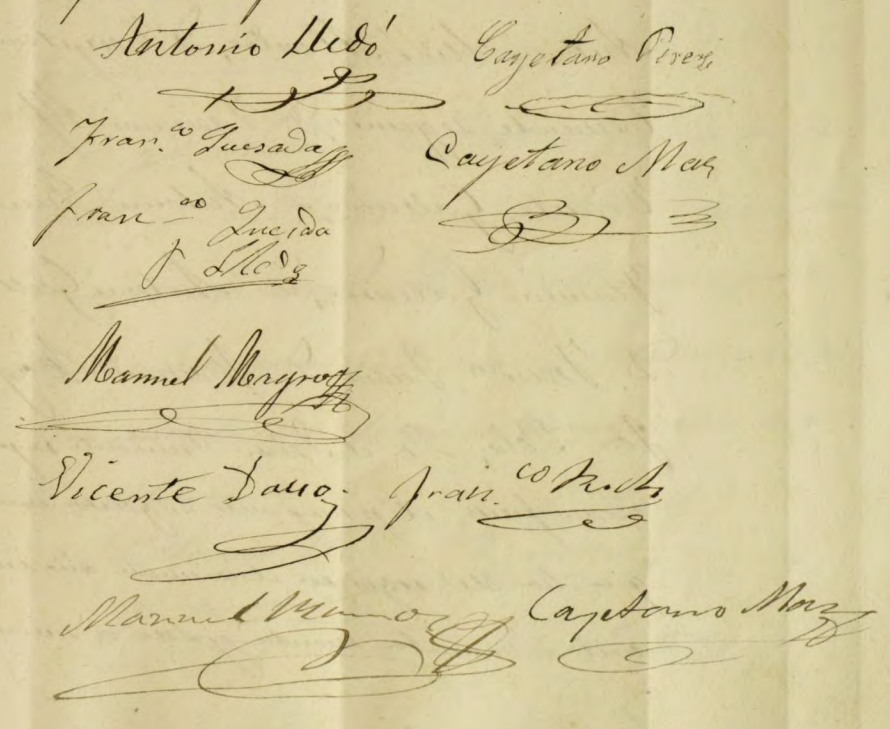 Antonio Lledó Cayetano Perez
Fran.co Quesada Cayetano Mas
Fran.co Quesada
y Lledó
Manuel Magro
Vicente
Fran.co
Manuel
Cayetano Mas